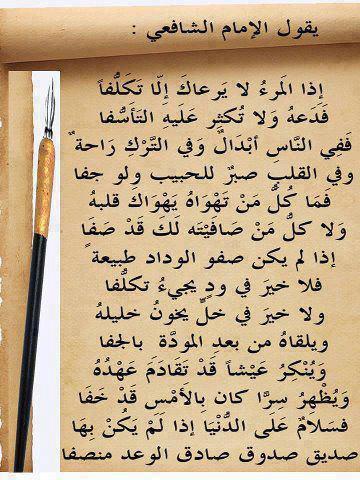 يقول الإمام الشافعي :
إذا المَرءُ لا يَرعاكَ إلّا تَكَلُّفاً
فَدَعهُ وَلا تُكثِر عَلَيهِ التَأَسُّفا
فَفِي النَّاسِ أبْدَالٌ وَفي التَّرْكِ رَاحةٌ
وفي القلبِ صبرٌ للحبيب ولو جفا
فَمَا كُلُّ مَنْ تَهْوَاهُ يَهْوَاكَ قلبهُ
وَلا كلُّ مَنْ صَافَيْتَه لَكَ قَدْ صَفَا
إذا لم يكن صفو الوداد طبيعةً
فلا خيرَ في ودٍ يجيءُ تكلُّفا
ولا خيرَ في خلٍّ يخونُ خليلهُ
ويلقاهُ من بعدِ المودَّةِ بالجفا
وَيُنْكِرُ عَيْشاً قَدْ تَقَادَمَ عَهْدُهُ
وَيُظْهِرُ سِرًّا كان بِالأمْسِ قَدْ خَفَا
فسَلامٌ عَلَى الدُّنْيَا إذا لَمْ يَكُنْ بِهَا
صديق صدوق صادق الوعد منصفا